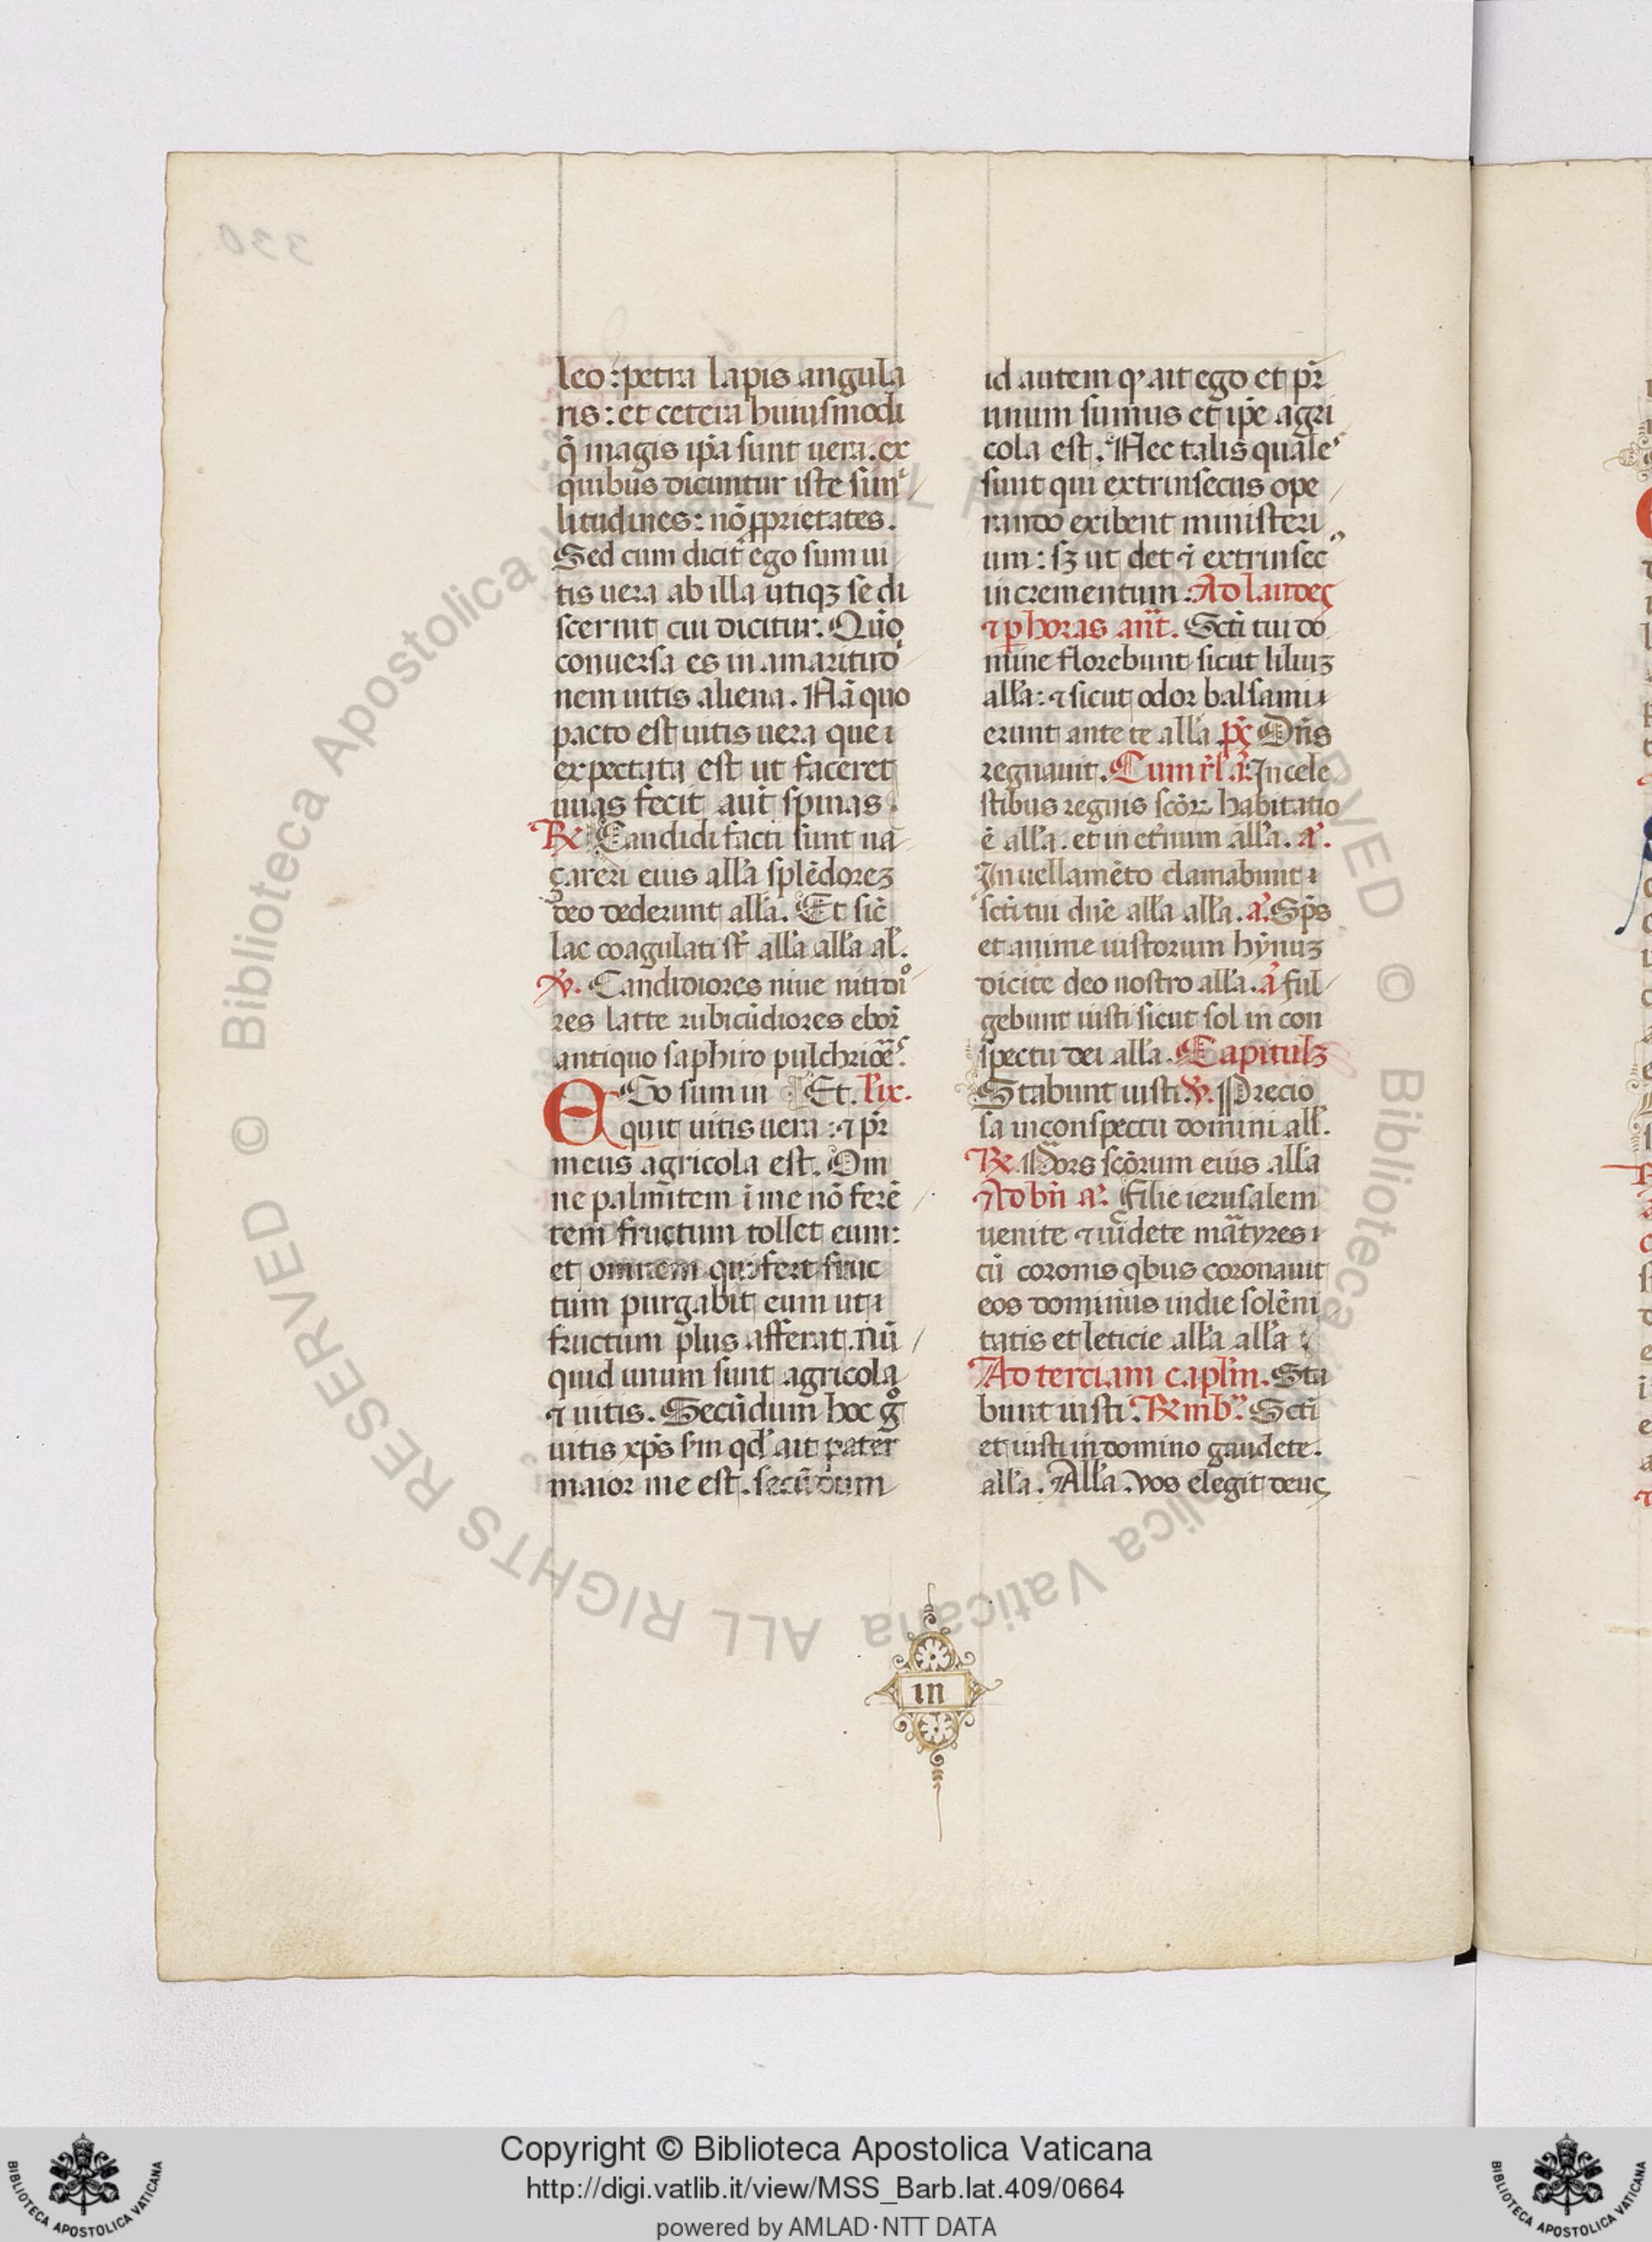 leo : petra lapis angula
ris : et cetera huiusmodi
q̃ magis ip̃a sunt uera. ex
quibus dicuntur iste simi
litudines : nõ ꝓprietates.
Sed cum dicit̃ ego sum ui
tis uera ab illa utiqꝫ se di
scernit cui dicitur. Quõ
conuersa es in amaritudi
nem uitis aliena. Nã quo
pacto est uitis uera que
expectata est ut faceret
uuas fecit aũt spinas.
℟ Candidi facti sunt na
çarei eius all'a splẽdoreꝫ
deo dederunt all'a. Et sic̃
lac coagulati sť all'a all'a al'.
℣. Candidiores niue nitidi
res lacte rubicũdiores ebor̃
antiquo saphiro pulchriõe˜s.
EGo sum in Et. l'ix.
quit uitis uera : ⁊ pr̃
meus agricola est. Om
ne palmitem ĩ me nõ ferẽ
tem fructum tollet eum:
et omnem qui fert fruc
tum purgabit eum ut
fructum plus afferat. Nũ
quid unum sunt agricola
⁊ uitis. Secũdum hoc g°
uitis xp̃s s'm qd' ait pater
maior me est. secũdum
id autem q' ait ego et pr̃
unum sumus et ip̃e agri
cola est. Nec talis quale˜s
sunt qui extrinsecus ope
rando exibent ministeri
um : sꝫ ut det ⁊ extrinsec'
incrementum : Ad laudes
⁊ p horas an̄t. Scti tui do
mine florebunt sicut liliuꝫ
all'a : ⁊ sicut odor balsami
erunt ante te all'a p̃s Dñs
regnauit. Cum r̃l. a. In cele
stibus regnis scõꝝ habitatio
ẽ all'a. et in et̃num all'a. a'.
In uellamẽto clamabunt
scti tui dñe all'a all'a. a'. Sp̃s
et anime iustorum hẏnuꝫ
dicite deo nostro all'a. a' ful
gebunt iusti sicut sol in con
spectu dei all'a. Capitulꝫ
Stabunt iusti ℣. Precio
sa inconspectu domini all'.
℟. Mors scõrum eius all'a
Ad bñ a'. Filie ierusalem
uenite ⁊ uidete martyres
cũ coronis qbus coronauit
eos dominus indie solẽni
tatis et leticie all'a all'a
Ad terciam caplm. Sta
bunt iusti. ℟ mb'. Scti
et iusti in domino gaudete.
all'a. All'a. vos elegit deus
in
Copyright © Biblioteca Apostolica Vaticana
http://digi.vatlib.it/view/MSS_Barb.lat.409/0664
powered by AMLAD·NTT DATA
BIBLIOTECA APOSTOLICA VATICANA
BIBLIOTECA APOSTOLICA VATICANA